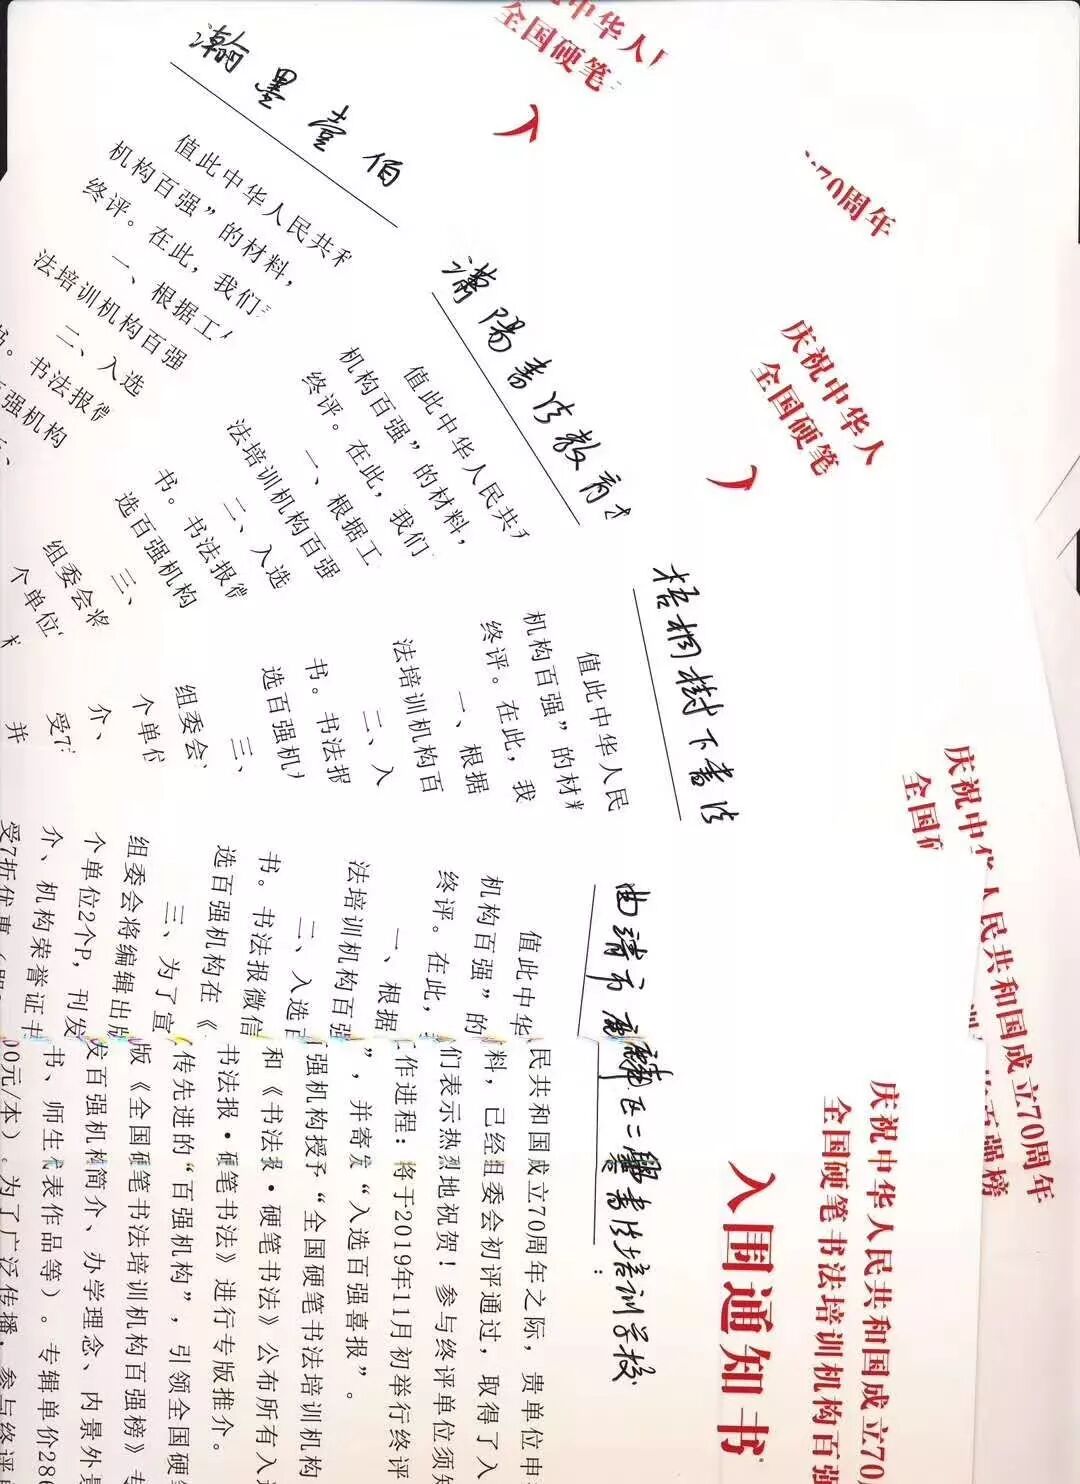 祝中华人
全国硬笔
入
瀚墨壹佰
值此中华人民共和
机构百强”的材料，
终评。在此，我们
一、根据工
法培训机构百强
二、入选
书。书法报微
选百强机构
70周年
庆祝中华人
全国硬笔
入
潇陽書法教育
值此中华人民共和
机构百强”的材料，
终评。在此，我们
一、根据工
法培训机构百强
二、入选
书。书法报微
选百强机构
三、
组委会将
个单位
庆祝中
全国硬
梧桐樹下書法
值此中华人民
机构百强”的材料
终评。在此，我
一、根据
法培训机构百
二、入
书。书法报
选百强机
三、
组委会
个单位
介、
受7
并
人民共和国成立70周年
百强榜
庆祝中华人民共和国成立70
全国硬笔书法培训机构百强
入围通知书
曲靖市麒麟区二 書法培训学校：
值此中华 民共和国成立70周年之际，贵单位申
机构百强”的 料，已经组委会初评通过，取得了入
终评。在此， 们表示热烈地祝贺！参与终评单位须知
一、根据 作进程：将于2019年11月初举行终评
法培训机构百强 ”，并寄发“入选百强喜报”。
二、入选百 强机构授予“全国硬笔书法培训机构
书。书法报微信 和《书法报·硬笔书法》公布所有入选
选百强机构在《 书法报·硬笔书法》进行专版推介。
三、为了宣 传先进的“百强机构”，引领全国硬
组委会将编辑出版 版《全国硬笔书法培训机构百强榜》专
个单位2个P，刊发 发百强机构简介、办学理念、内景外景
介、机构荣誉证书 书、师生代表作品等）。专辑单价280
受7折优惠 00元/本）。为了广泛传播，参与终评